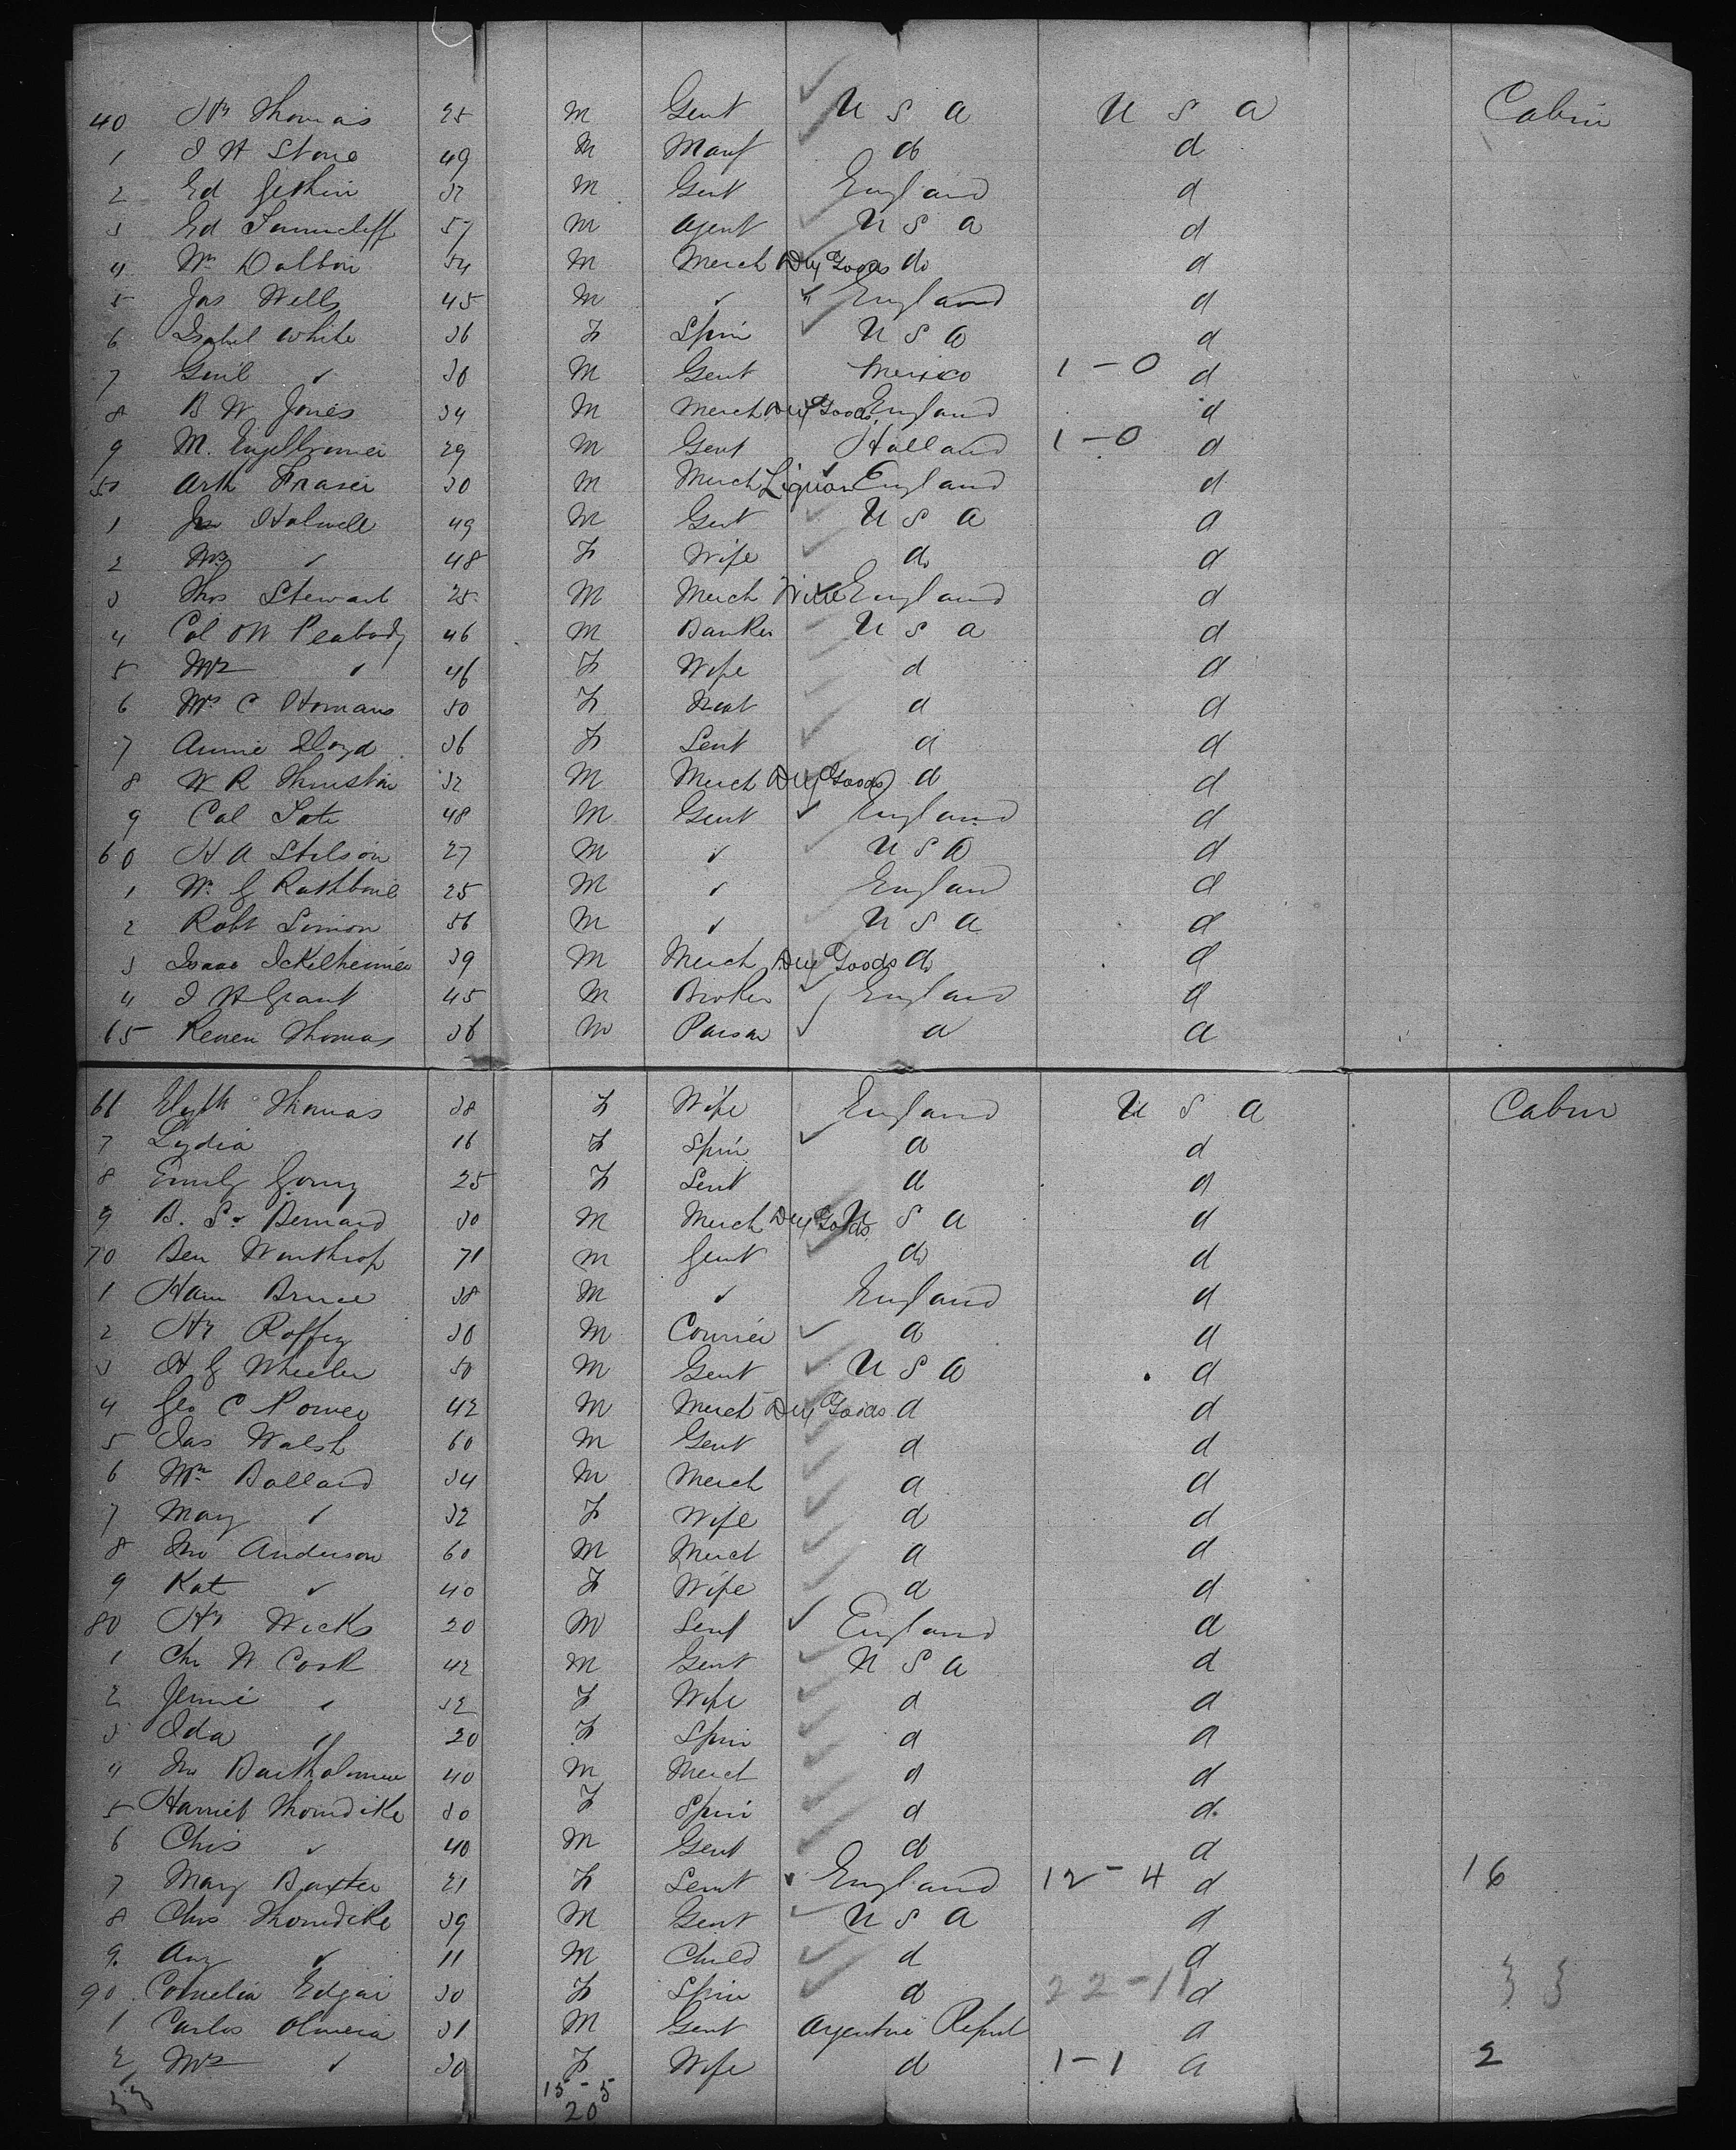 40 Hy Thomas 25 M Gent U S A U S A Cabin
1 J H Stone 49 M Manf do d
2 Ed 32 M Gent England d
3 Ed 57 M Agent U S A d
4 Wm Dalton 54 M Merch Dry Goods do d
5 Jas Wells 45 M " " England d
6 Isabel White 36 F Spin U S A d
7 " 30 M Gent Mexico 1-0 d
8 B W Jones 34 M Merch Dry Goods England d
9 M. 29 M Gent Holland 1-0 d
50 Arth Fraser 30 M Merch Liquor England d
1 Jno Holwell 49 M Gent U S A d
2 Mrs " 48 F Wife do d
3 Thos Stewart 25 M Merch Wine England d
4 Col O W Peabody 46 M Banker U S A d
5 Mrs " 46 F Wife d d
6 Mrs C Homans 50 F d d
7 Annie Lloyd 36 F Sert d d
8 W R Thurston 32 M Merch Dry Goods d d
9 Col 48 M Gent England d
60 H A Stilson 27 M " U S A d
1 Wm G Rathbone 25 M " England d
2 Robt Simon 56 M " U S A d
3 Isaac Ickelheimer 39 M Merch Dry Goods do d
4 J H Grant 45 M Broker England d
65 Reuen Thomas 36 M Parson d d
66 Elizth Thomas 38 F Wife England U S A Cabin
7 Lydia 16 F Spin d d
8 Emily 25 F Sert d d
9 B. St Bernard 30 M Merch Dry Goods U S A d
70 Ben Winthrop 71 M Gent do d
1 Ham Bruce 38 M " England d
2 Hy Roffey 30 M Courier d d
3 H G Wheeler 50 M Gent U S A d
4 Geo C Power 42 M Merch Dry Goods d d
5 Jas Walsh 60 M Gent d d
6 Wm Ballard 34 M Merch d d
7 Mary " 32 F Wife d d
8 Jno Anderson 60 M Merch d d
9 Kat " 40 F Wife d d
80 Hy Wicks 20 M Sert England d
1 Chr W Cook 42 M Gent U S A d
2 Jennie " 32 F Wife d d
3 Ida " 20 F Spin d d
4 Jno Bartholomew 40 M Merch d d
5 Harriet Thorndike 30 F Spin d d
6 Chs " 40 M Gent d d
7 Mary Baxter 21 F Servt England 12-4 d 16
8 Chs Thorndike 39 M Gent U S A d
9 Aug " 11 M Child d d
90 Cornelia Edgar 30 F Spin d 22-11 d
1 Carlos Olivera 31 M Gent Argentine Repub d
2 Mrs " 30 F Wife d 1-1 d 2
53 15-5
20